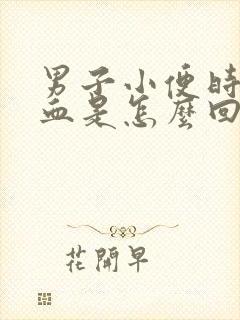 男子小便時
血是怎麼回
花開早